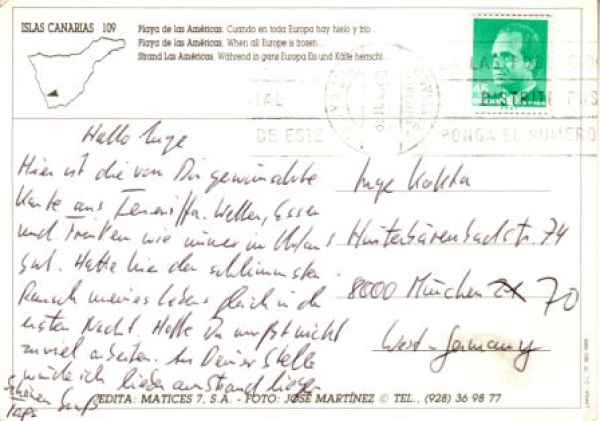 ISLAS CANARIAS 109
Playa de las Américas. Cuando en toda Europa hay hielo y frío...
Playa de las Américas. When all Europe is frozen...
Strand Las Américas. Während in ganz Europa Eis und Kälte herrscht...
45
DISTRITO POS
DE ESTE
PONGA EL NUMERO
Hallo Inge
Hier ist die von Dir gewünschte
Karte aus Teneriffa. Wetter, Essen
und Trinken wie immer im Urlaub
gut. Hatte hier den schlimmsten
Rausch meines Lebens gleich in der
ersten Nacht. Hoffe Du mußt nicht
zuviel arbeiten. An Deiner Stelle
würde ich lieber am Strand liegen
Schönen Gruß
Inge
Hinterbärenbadstr. 74
8000 München 70
West-Germany
EDITA: MATICES 7, S.A. - FOTO: JOSÉ MARTÍNEZ © TEL., (928) 36 98 77